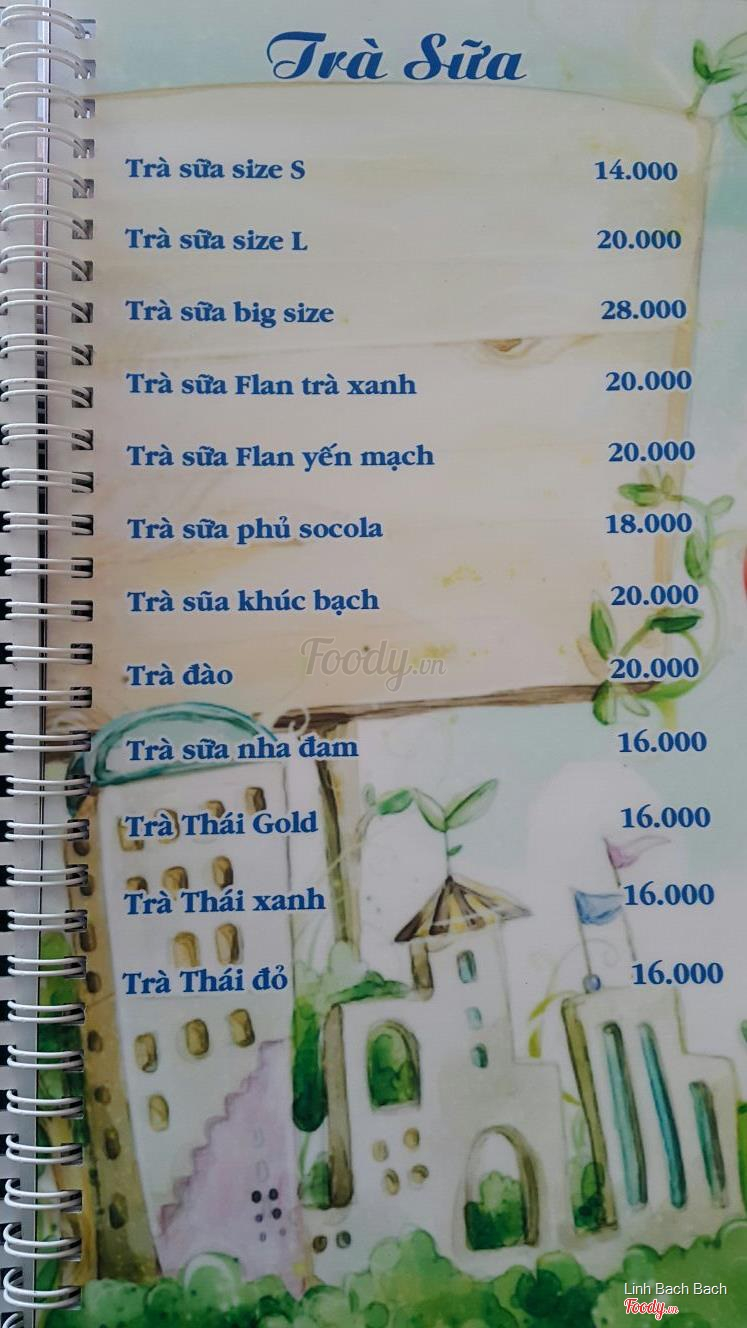 Trà Sữa
Trà sữa size S 14.000
Trà sữa size L 20.000
Trà sữa big size 28.000
Trà sữa Flan trà xanh 20.000
Trà sữa Flan yến mạch 20.000
Trà sữa phủ socola 18.000
Trà sũa khúc bạch 20.000
Foody.vn
Trà đào 20.000
Trà sữa nha đam 16.000
Trà Thái Gold 16.000
Trà Thái xanh 16.000
Trà Thái đỏ 16.000
Linh Bach Bach
Foody.vn